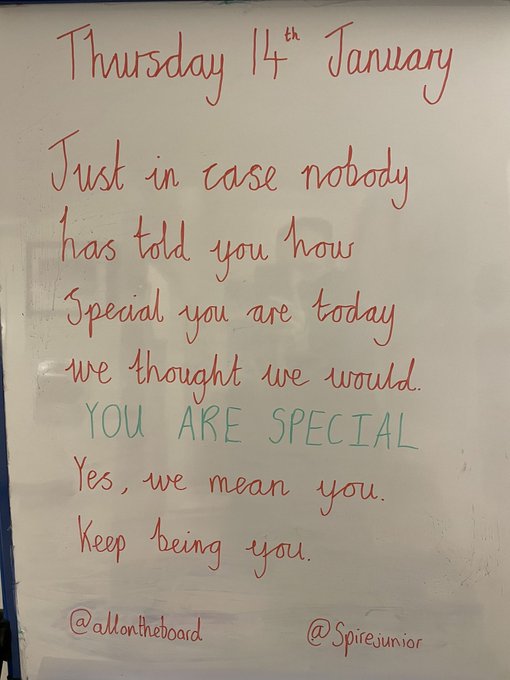 Thursday 14th January
Just in case nobody
has told you how
Special you are today
we thought we would.
YOU ARE SPECIAL
Yes, we mean you.
Keep being you.
@allontheboard @Spirejunior